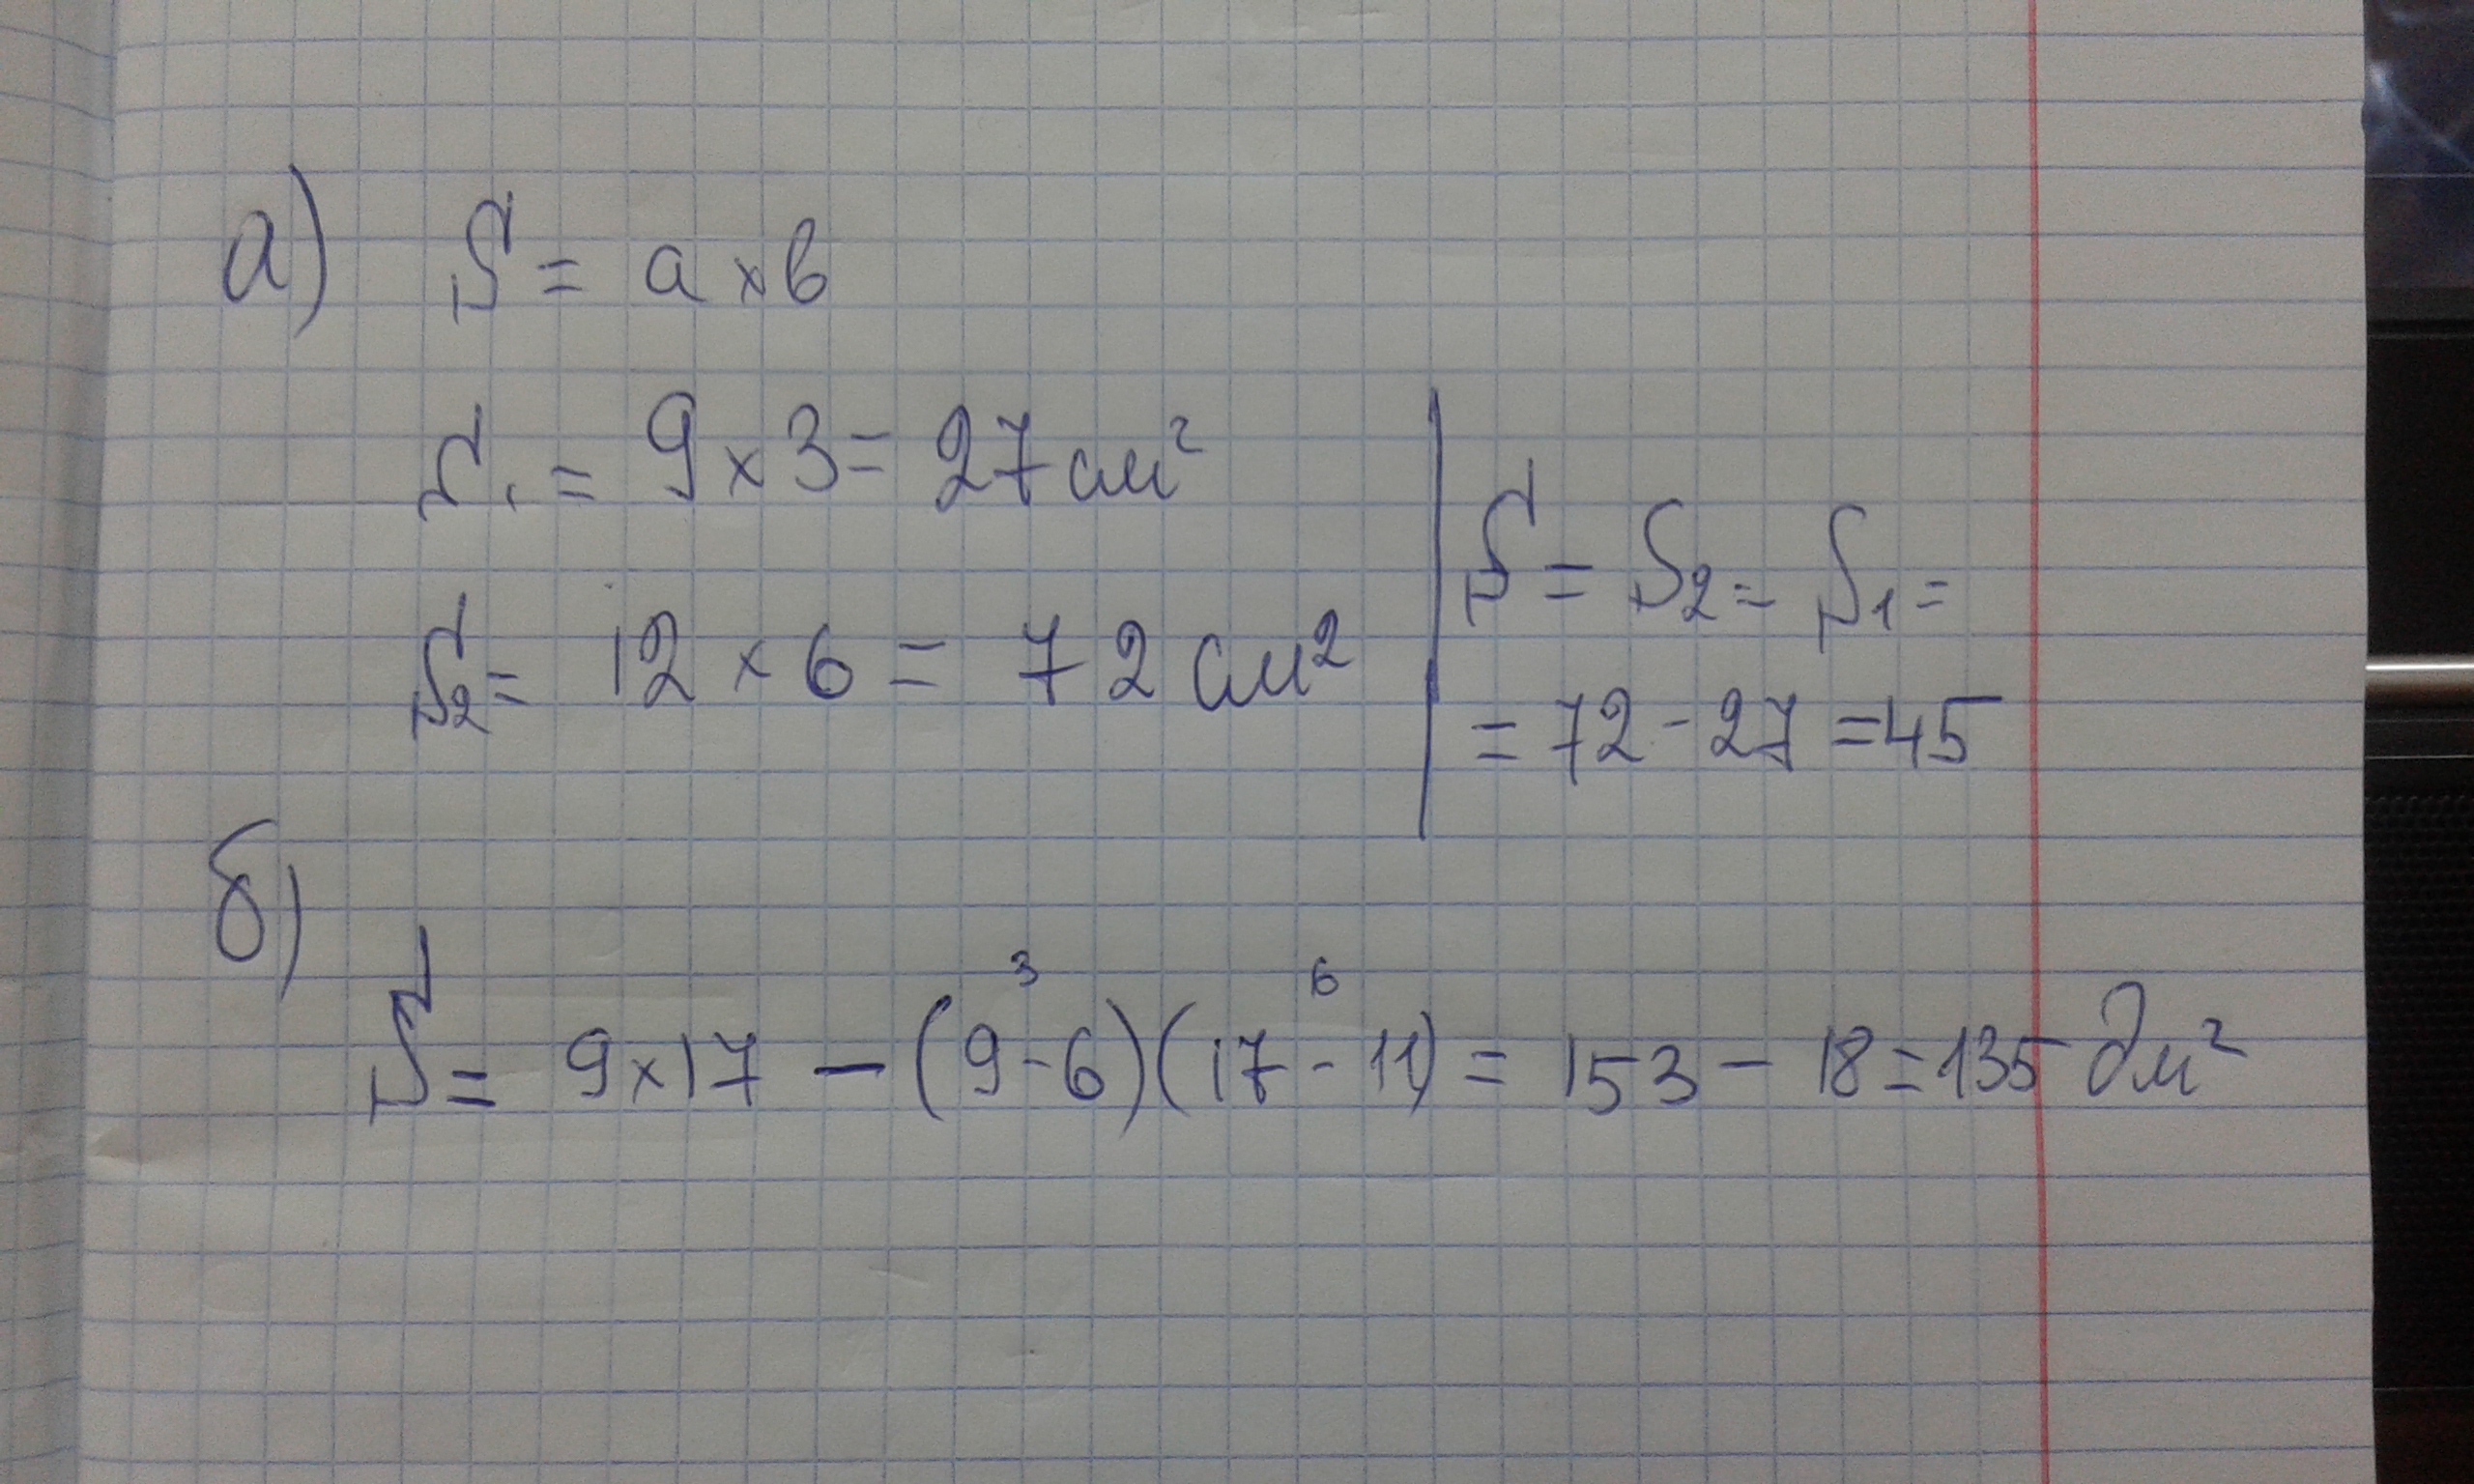 а) S = a × b
S₁ = 9 × 3 = 27 см²
S₂ = 12 × 6 = 72 см²
S = S₂ = S₁ =
= 72 - 27 = 45
б)
3 6
S = 9 × 17 — (9 - 6)(17 - 11) = 153 - 18 = 135 дм²